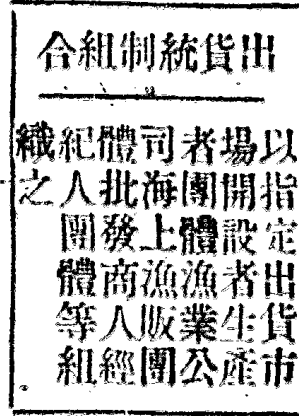 出貨統制組合
以指定出貨市
場開設者生產
者團體漁業公
司海上漁販團
體批發商人經
紀人團體等組
織之